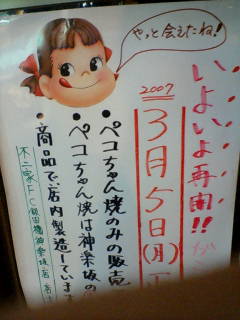 やっと会えたね!
いよいよ再開!!
2007
3月5日(月)
・ペコちゃん焼のみの販売
・ペコちゃん焼は神楽坂の
商品で、店内製造しています
不二家FC飯田橋神楽坂店